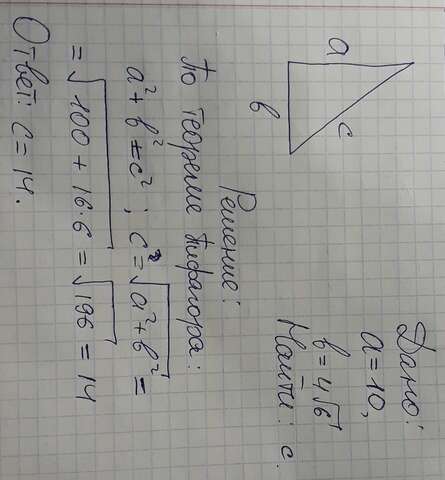 a
в
c
Дано:
a=10,
в=4√6
Найти: c.
Решение:
По теореме Пифагора:
a²+в²=c²; c=√a²+в² =
=√100+16·6 =√196 = 14
Ответ: c=14.